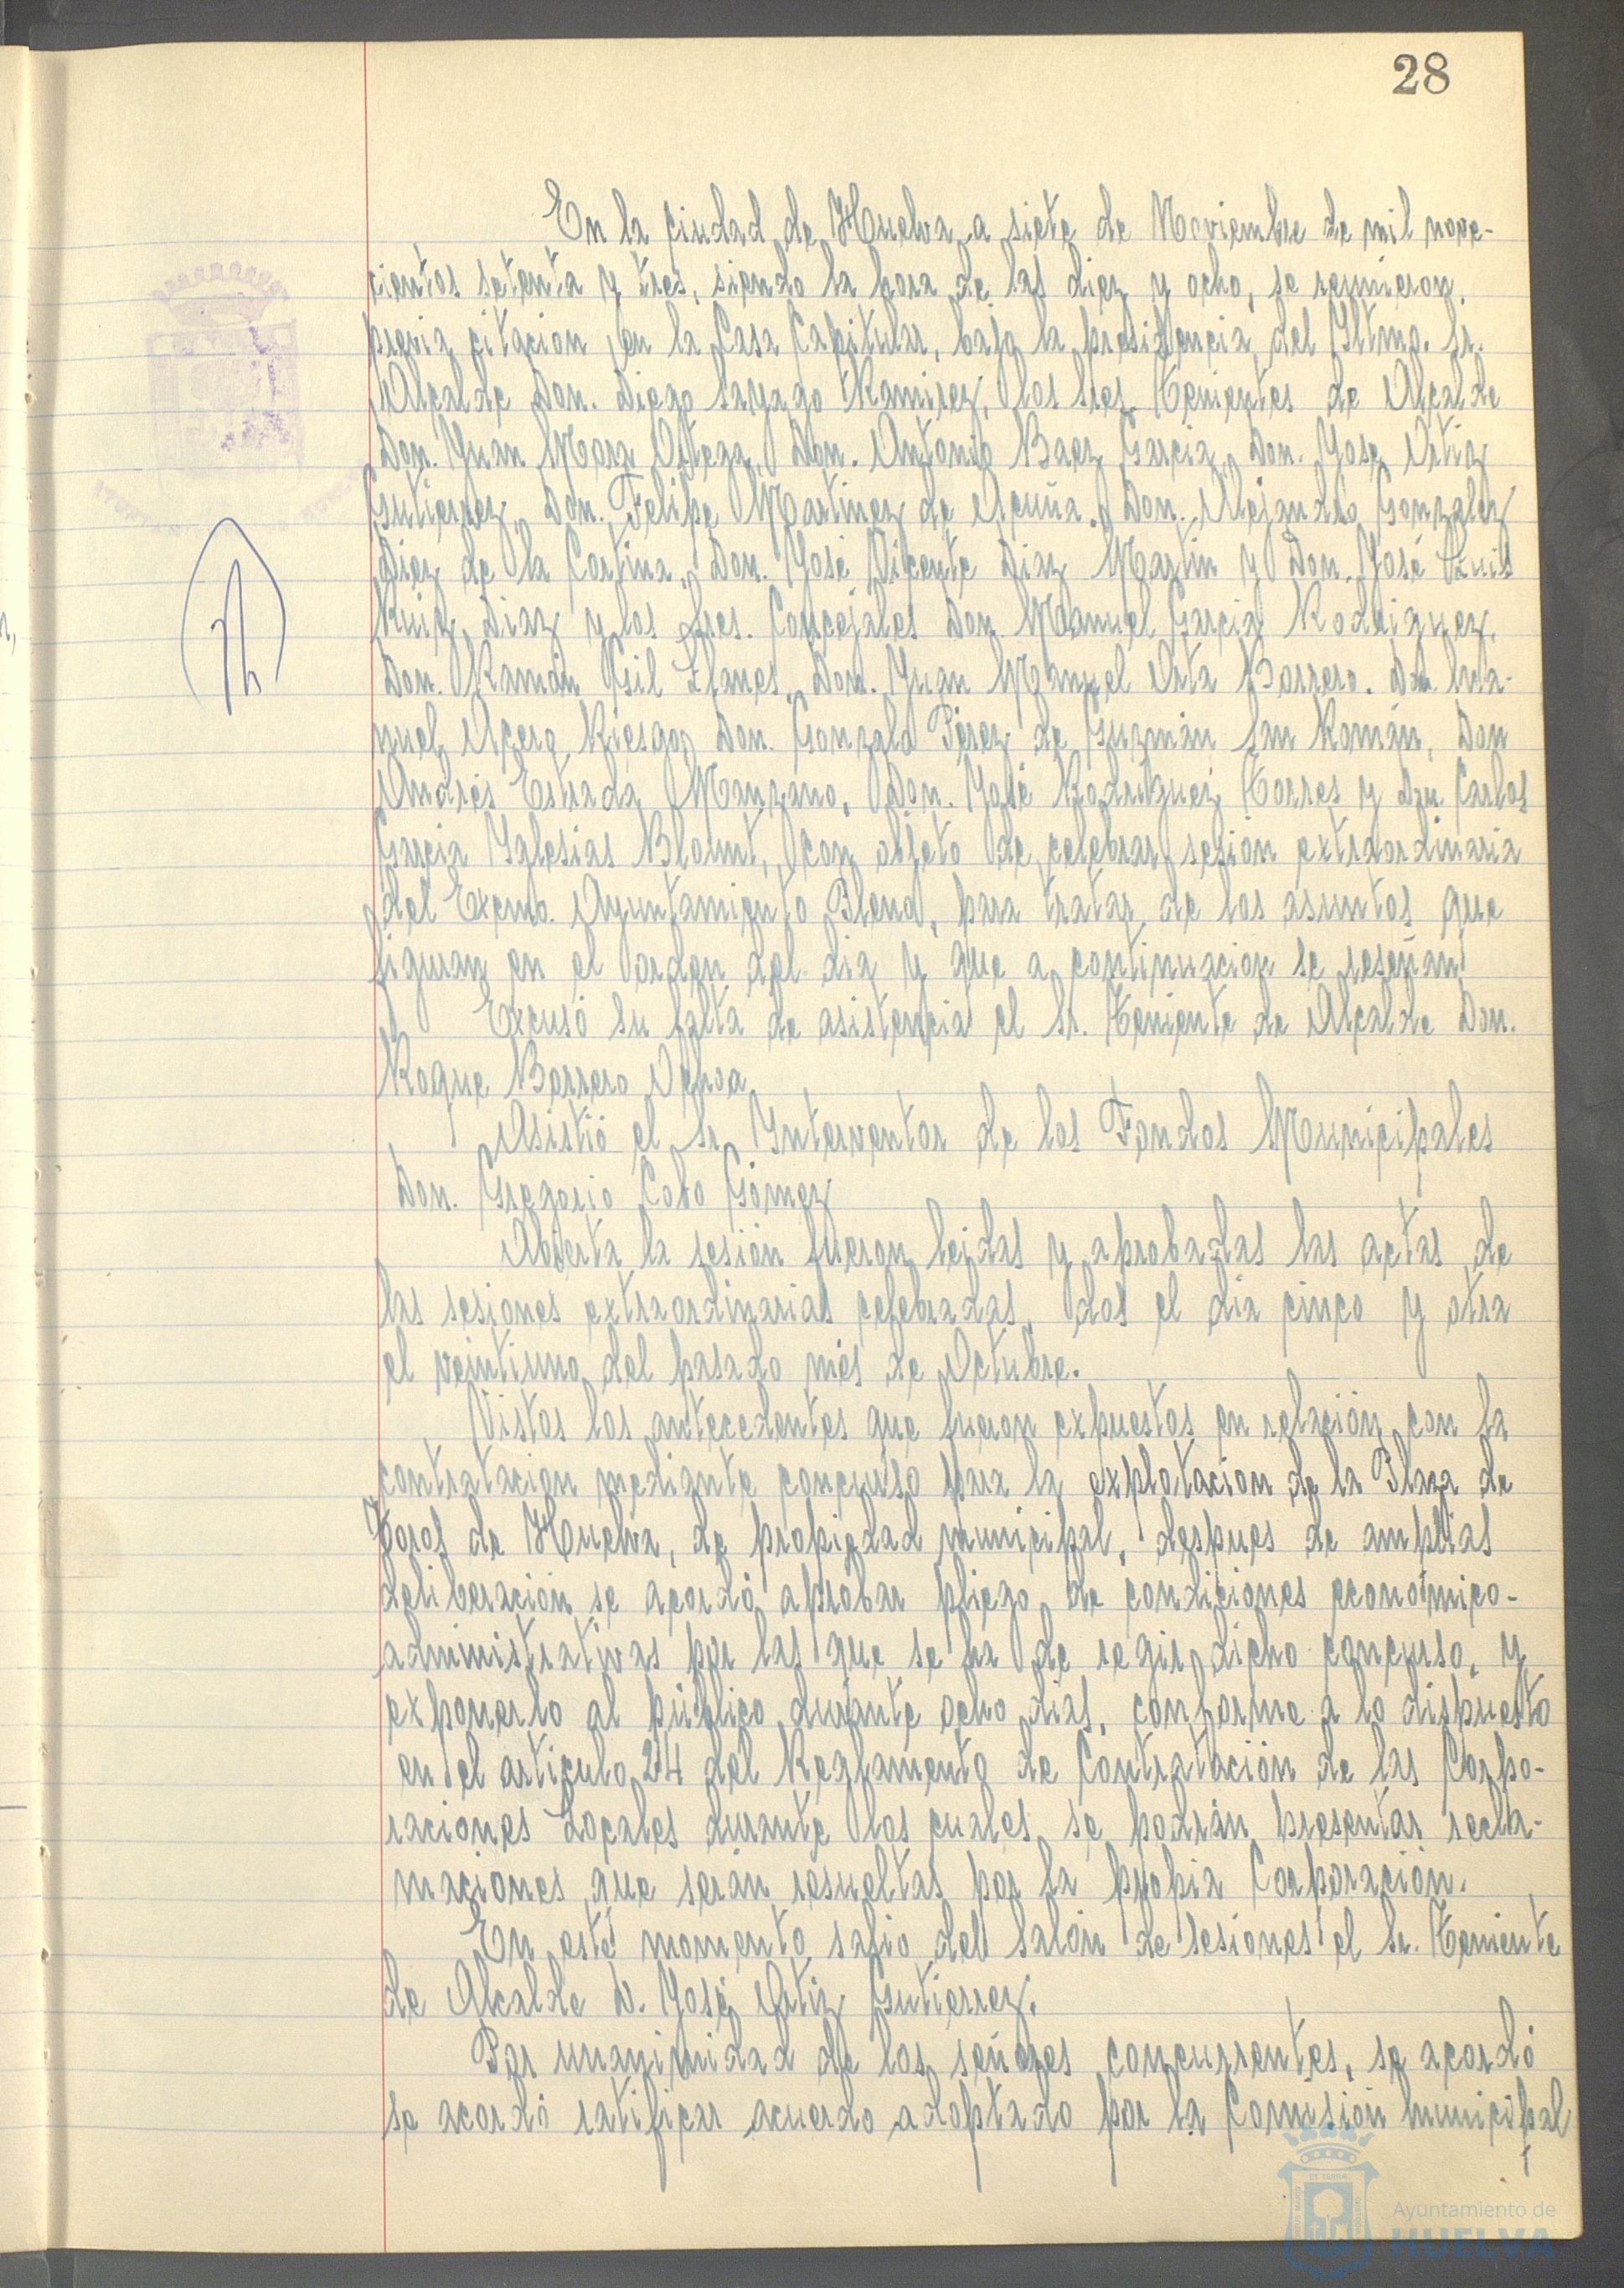 28
En la ciudad de Huelva a siete de Noviembre de mil nove-
cientos setenta y tres, siendo la hora de las diez y ocho, se reunieron,
previa citacion, en la Casa Capitular, bajo la presidencia del Yltmo. Sr.
Alcalde Don. Diego Sayago Ramirez, los Sres. Tenientes de Alcalde
Don. Juan Mora Ortega, Don. Antonio Baez Garcia, Don. José Ortiz
Gutierrez, Don. Felipe Martinez de Acuña, Don. Alejandro Gonzalez
Diez de la Cortina, Don. José Vicente Diaz Martin y Don. José Luis
Ruiz Diaz y los Sres. Concejales Don. Manuel Garcia Rodriguez,
Don. Ramón Gil Llanes, Don. Juan Manuel Orta Borrero, Don Ma-
nuel Acero Riesgo, Don. Gonzalo Pérez de Guzmán San Román, Don
Andrés Estrada Manzano, Don. José Rodriguez Torres y Don Carlos
Garcia Yglesias Blount, con objeto de celebrar sesión extraordinaria
del Excmo. Ayuntamiento Pleno, para tratar de los asuntos que
figuran en el orden del dia y que a continuacion se reseñan
Excusó su falta de asistencia el Sr. Teniente de Alcalde Don.
Roque Borrero Ochoa
Asistió el Sr. Ynterventor de los Fondos Municipales
Don. Gregorio Cobo Gómez
Abierta la sesión fueron leidas y aprobadas las actas de
las sesiones extraordinarias celebradas, dos el dia cinco y otra
el veintiuno del pasado més de Octubre.
Vistos los antecedentes que fueron expuestos en relación con la
contratacion mediante concurso para la explotacion de la Plaza de
Toros de Huelva, de propiedad municipal, despues de amplias
deliberación se acordó aprobar pliego de condiciones económico-
administrativas por las que se ha de regir dicho concurso, y
exponerlo al público durante ocho dias, conforme a lo dispuesto
en el articulo 24 del Reglamento de Contratación de las Corpo-
raciones Locales durante los cuales se podrán presentar recla-
maciones que serán resueltas por la propia Corporación.
En este momento salio del Salón de sesiones el Sr. Teniente
de Alcalde D. José Ortiz Gutierrez.
Por unanimidad de los señores concurrentes, se acordó
se acordó ratificar acuerdo adoptado por la Comisión municipal
Ayuntamiento de
HUELVA